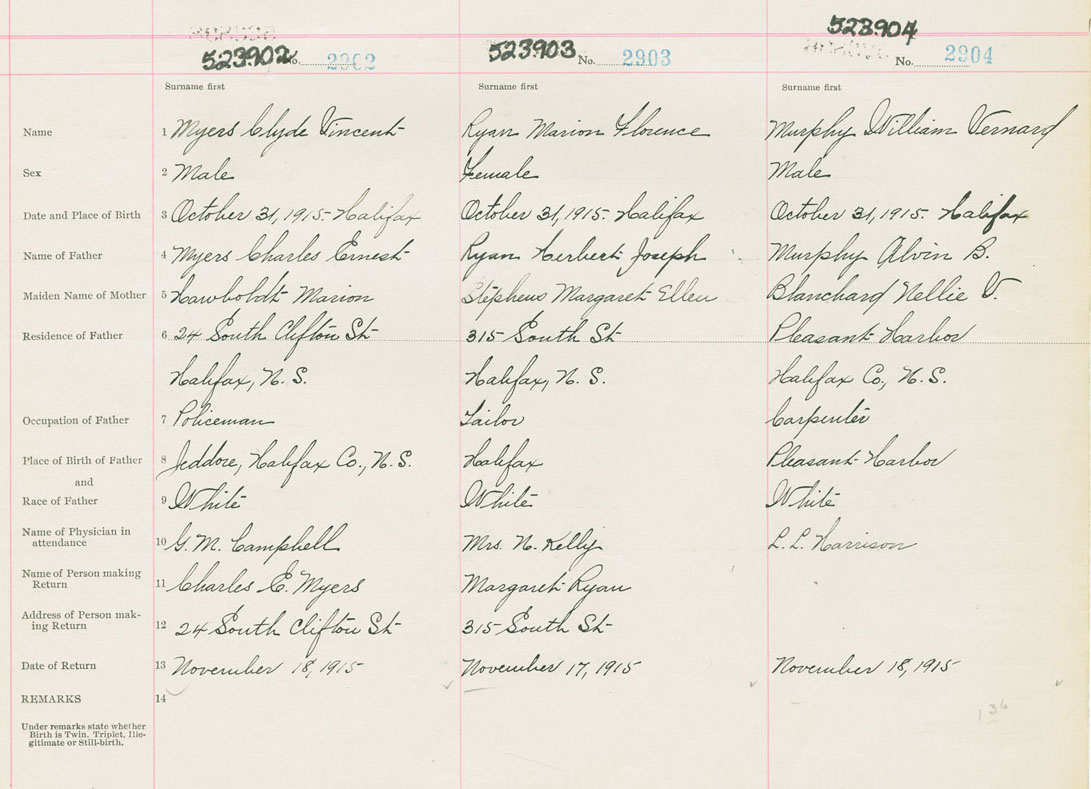 523902 523903 523904
No. 2902 No. 2903 No. 2904
Surname first Surname first Surname first
Name 1 Myers Clyde Vincent Ryan Marion Florence Murphy William Vernard
Sex 2 Male Female Male
Date and Place of Birth 3 October 31, 1915 - Halifax October 31, 1915 - Halifax October 31, 1915 - Halifax
Name of Father 4 Myers Charles Ernest Ryan Herbert Joseph Murphy Alvin B.
Maiden Name of Mother 5 Hawboldt Marion Stephens Margaret Ellen Blanchard Nellie V.
Residence of Father 6 24 South Clifton St 315 South St Pleasant Harbor
Halifax, N. S. Halifax, N. S. Halifax Co., N. S.
Occupation of Father 7 Policeman Tailor Carpenter
Place of Birth of Father 8 Jeddore, Halifax Co., N. S. Halifax Pleasant Harbor
and
Race of Father 9 White White White
Name of Physician in
attendance 10 G. M. Campbell Mrs. N. Kelly L. L. Harrison
Name of Person making
Return 11 Charles E. Myers Margaret Ryan
Address of Person mak-
ing Return 12 24 South Clifton St 315 South St
Date of Return 13 November 18, 1915 November 17, 1915 November 18, 1915
REMARKS 14
Under remarks state whether
Birth is Twin, Triplet, Ille-
gitimate or Still-birth.
136